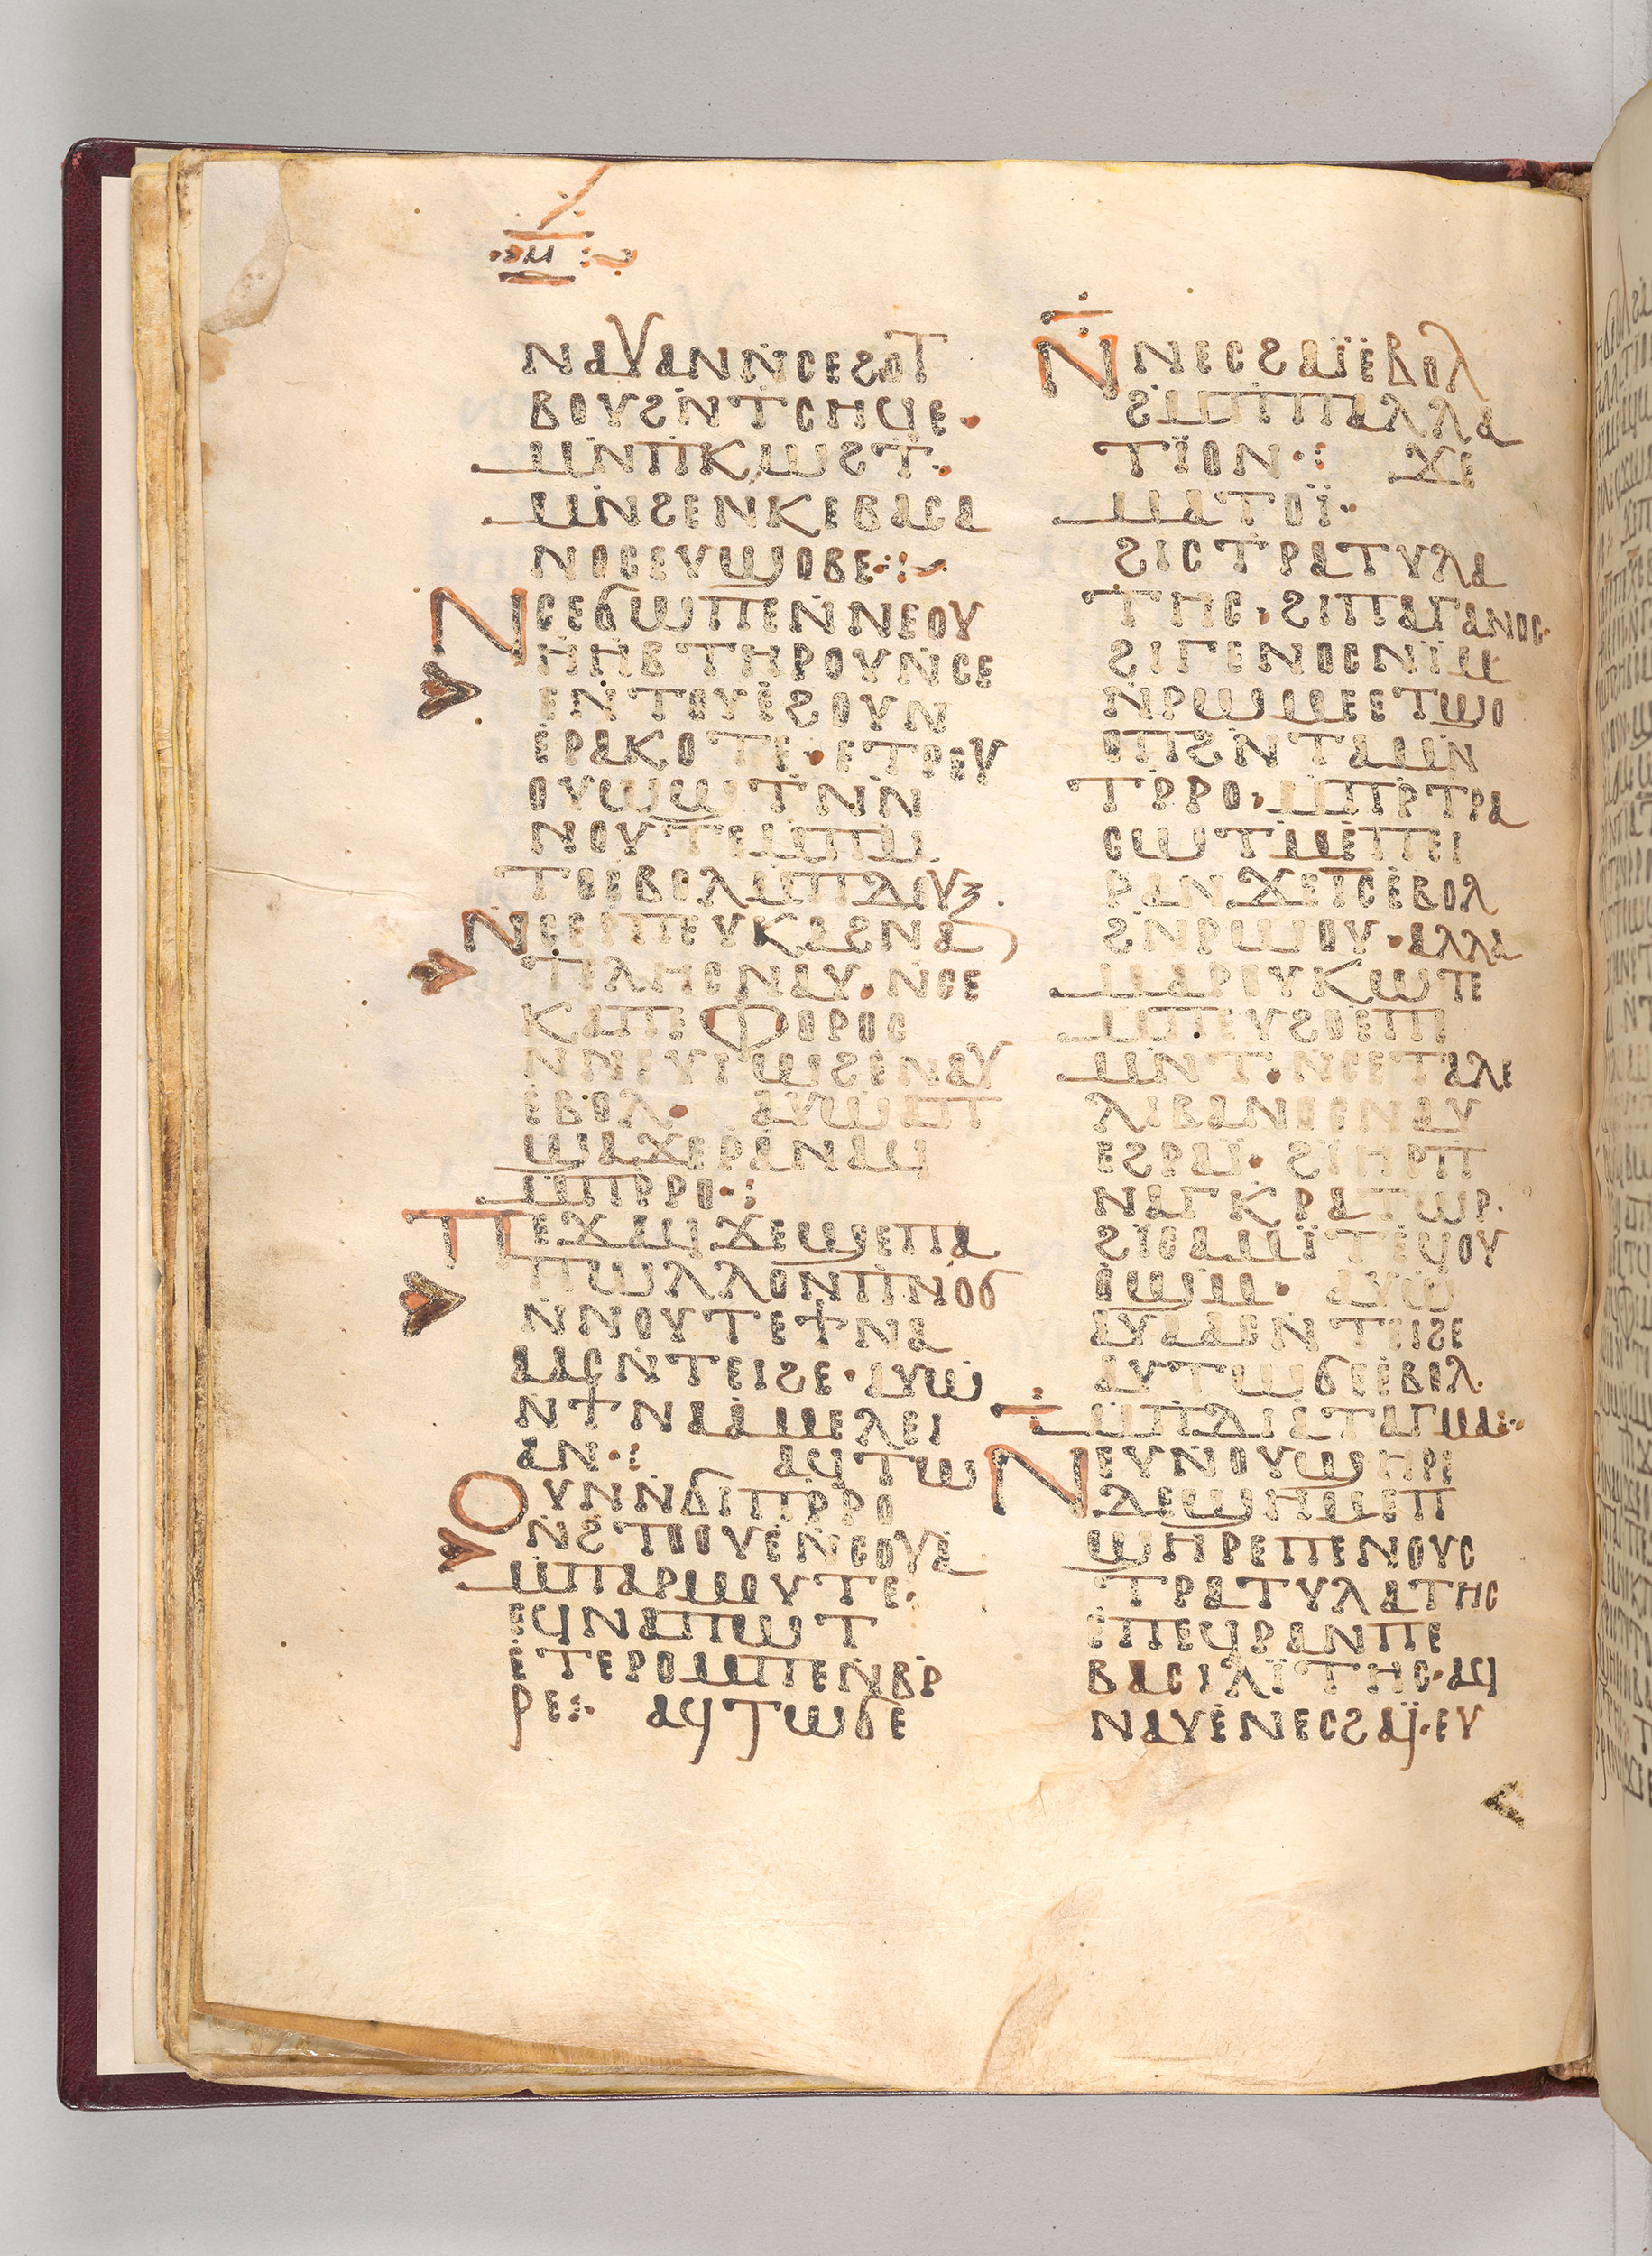 ⲙ
ⲛⲁⲩⲁⲛⲛ̇ⲥⲉϩⲟⲧ
ⲃⲟⲩϩⲛ̇ⲧⲥⲏϥⲉ·
ⲙⲛ̇ⲡⲕⲱϩⲧ·
ⲙⲛ̇ϩⲉⲛⲕⲉⲃⲁⲥⲁ
ⲛⲟⲥⲉⲩϣⲟⲃⲉ·:
ⲛⲥⲉϭⲱⲡⲉⲛ̇ⲛⲉⲟⲩ
ⲏⲏⲃⲧⲏⲣⲟⲩⲛ̇ⲥⲉ
ⲉⲛⲧⲟⲩⲉ̇ϩⲟⲩⲛ
ⲉ̇ⲣⲁⲕⲟⲧⲉ·ⲉⲧⲣⲉⲩ
ⲟⲩⲱϣⲧⲛ̇ⲛ̇
ⲛⲟⲩⲧⲉⲙ̇ⲡⲙ̇
ⲧⲟⲉⲃⲟⲗⲙ̇ⲡⲇⲟⲩⲝ·
ⲛⲥⲉⲣⲡⲉⲩⲕⲁϩⲛⲁ
ⲧⲉⲗⲏⲥⲛⲁⲩ·ⲛ̇ⲥⲉ
ⲕⲁⲡⲉⲫⲟⲣⲟⲥ
ⲛⲛⲉⲩⲓⲱϩⲉⲛⲁⲩ
ⲉⲃⲟⲗ· ⲁⲩⲱⲁⲡ
ϣⲁϫⲉⲣⲁⲛⲁϥ
ⲙ̇ⲡⲣⲣⲟ·:
ⲡⲉϫⲁϥϫⲉϣⲉⲡⲁ
ⲡⲱⲗⲗⲟⲛⲡⲛⲟϭ
ⲛ̇ⲛⲟⲩⲧⲉϯⲛⲁ
ⲁⲁⲥⲛ̇ⲧⲉⲓϩⲉ·ⲁⲩⲱ
ⲛϯⲛⲁⲁⲙⲉⲗⲉⲓ
ⲁⲛ·: ⲁϥⲧⲱ
ⲟⲩⲛⲛ̇ϭⲓⲡⲣⲣⲟ
ⲛ̇ϩⲧⲟⲟⲩⲉ̇ⲛ̇ⲥⲟⲩⲁ
ⲙ̇ⲡⲁⲣⲙⲟⲩⲧⲉ:
ⲉϥⲛⲁⲡⲱⲧ
ⲉ̇ⲧⲉⲣⲟⲙⲡⲉⲛ̇ⲃⲣ
ⲣⲉ:· ⲁϥⲧⲱϭⲉ
ⲛ̇ⲛⲉⲥϩⲁⲓ̈ⲉ̇ⲃⲟⲗ
ϩⲙ̇ⲡⲡⲁⲗⲗⲁ
ⲧⲓ̈ⲟⲛ·: ϫⲉ
ⲙⲁⲧⲟⲓ̈·
ϩⲓⲥⲧⲣⲁⲧⲩⲗⲁ
ⲧⲏⲥ·ϩⲓⲡⲁⲅⲁⲛⲟⲥ·
ϩⲓⲅⲉⲛⲟⲥⲛⲓ̈ⲙ
ⲛ̇ⲣⲱⲙⲉⲉⲧϣⲟ
ⲟⲡϩⲛ̇ⲧⲁⲙⲛ̇
ⲧⲣⲣⲟ·ⲙ̇ⲡⲣⲧⲣⲁ
ⲥⲱⲧⲙⲉⲡⲉⲓ
ⲣⲁⲛϫⲉⲓ̅ⲥ̅ⲉ̇ⲃⲟⲗ
ϩⲛ̇ⲣⲱⲟⲩ·ⲁⲗⲗⲁ
ⲙⲁⲣⲟⲩⲕⲱⲧⲉ
ⲙ̇ⲡⲉⲩϩⲟⲉⲡⲉ
ⲙⲛ̇ⲧ·ⲛ̇ⲥⲉⲧⲁⲗⲉ
ⲗⲓⲃⲁⲛⲟⲥⲛⲁⲩ
ⲉϩⲣⲁⲓ̈·ϩⲓⲏⲣⲡ
ⲛⲁⲅⲕⲣⲁⲧⲱⲣ·
ϩⲓⲥⲁⲙⲓ̈ⲧⲉϥⲟⲩ
ⲟϣⲙ· ⲁⲩⲱ
ⲁⲩⲁⲁⲥⲛ̇ⲧⲉⲓϩⲉ
ⲁⲩⲧⲱϭⲉⲉ̇ⲃⲟⲗ·
ⲙ̇ⲡⲇⲓⲁⲧⲁⲅⲙⲁ:·
ⲛⲉⲩⲛⲟⲩϣⲏⲣⲉ
ⲇⲉϣⲏⲙⲉⲡ
ϣⲏⲣⲉⲡⲉⲛⲟⲩⲥ
ⲧⲣⲁⲧⲩⲗⲁⲧⲏⲥ
ⲉⲡⲉϥⲣⲁⲛⲡⲉ
ⲃⲁⲥⲓⲗⲓ̈ⲧⲏⲥ·ⲁϥ
ⲛⲁⲩⲉ̇ⲛⲉⲥϩⲁⲓ̈·ⲉⲩ